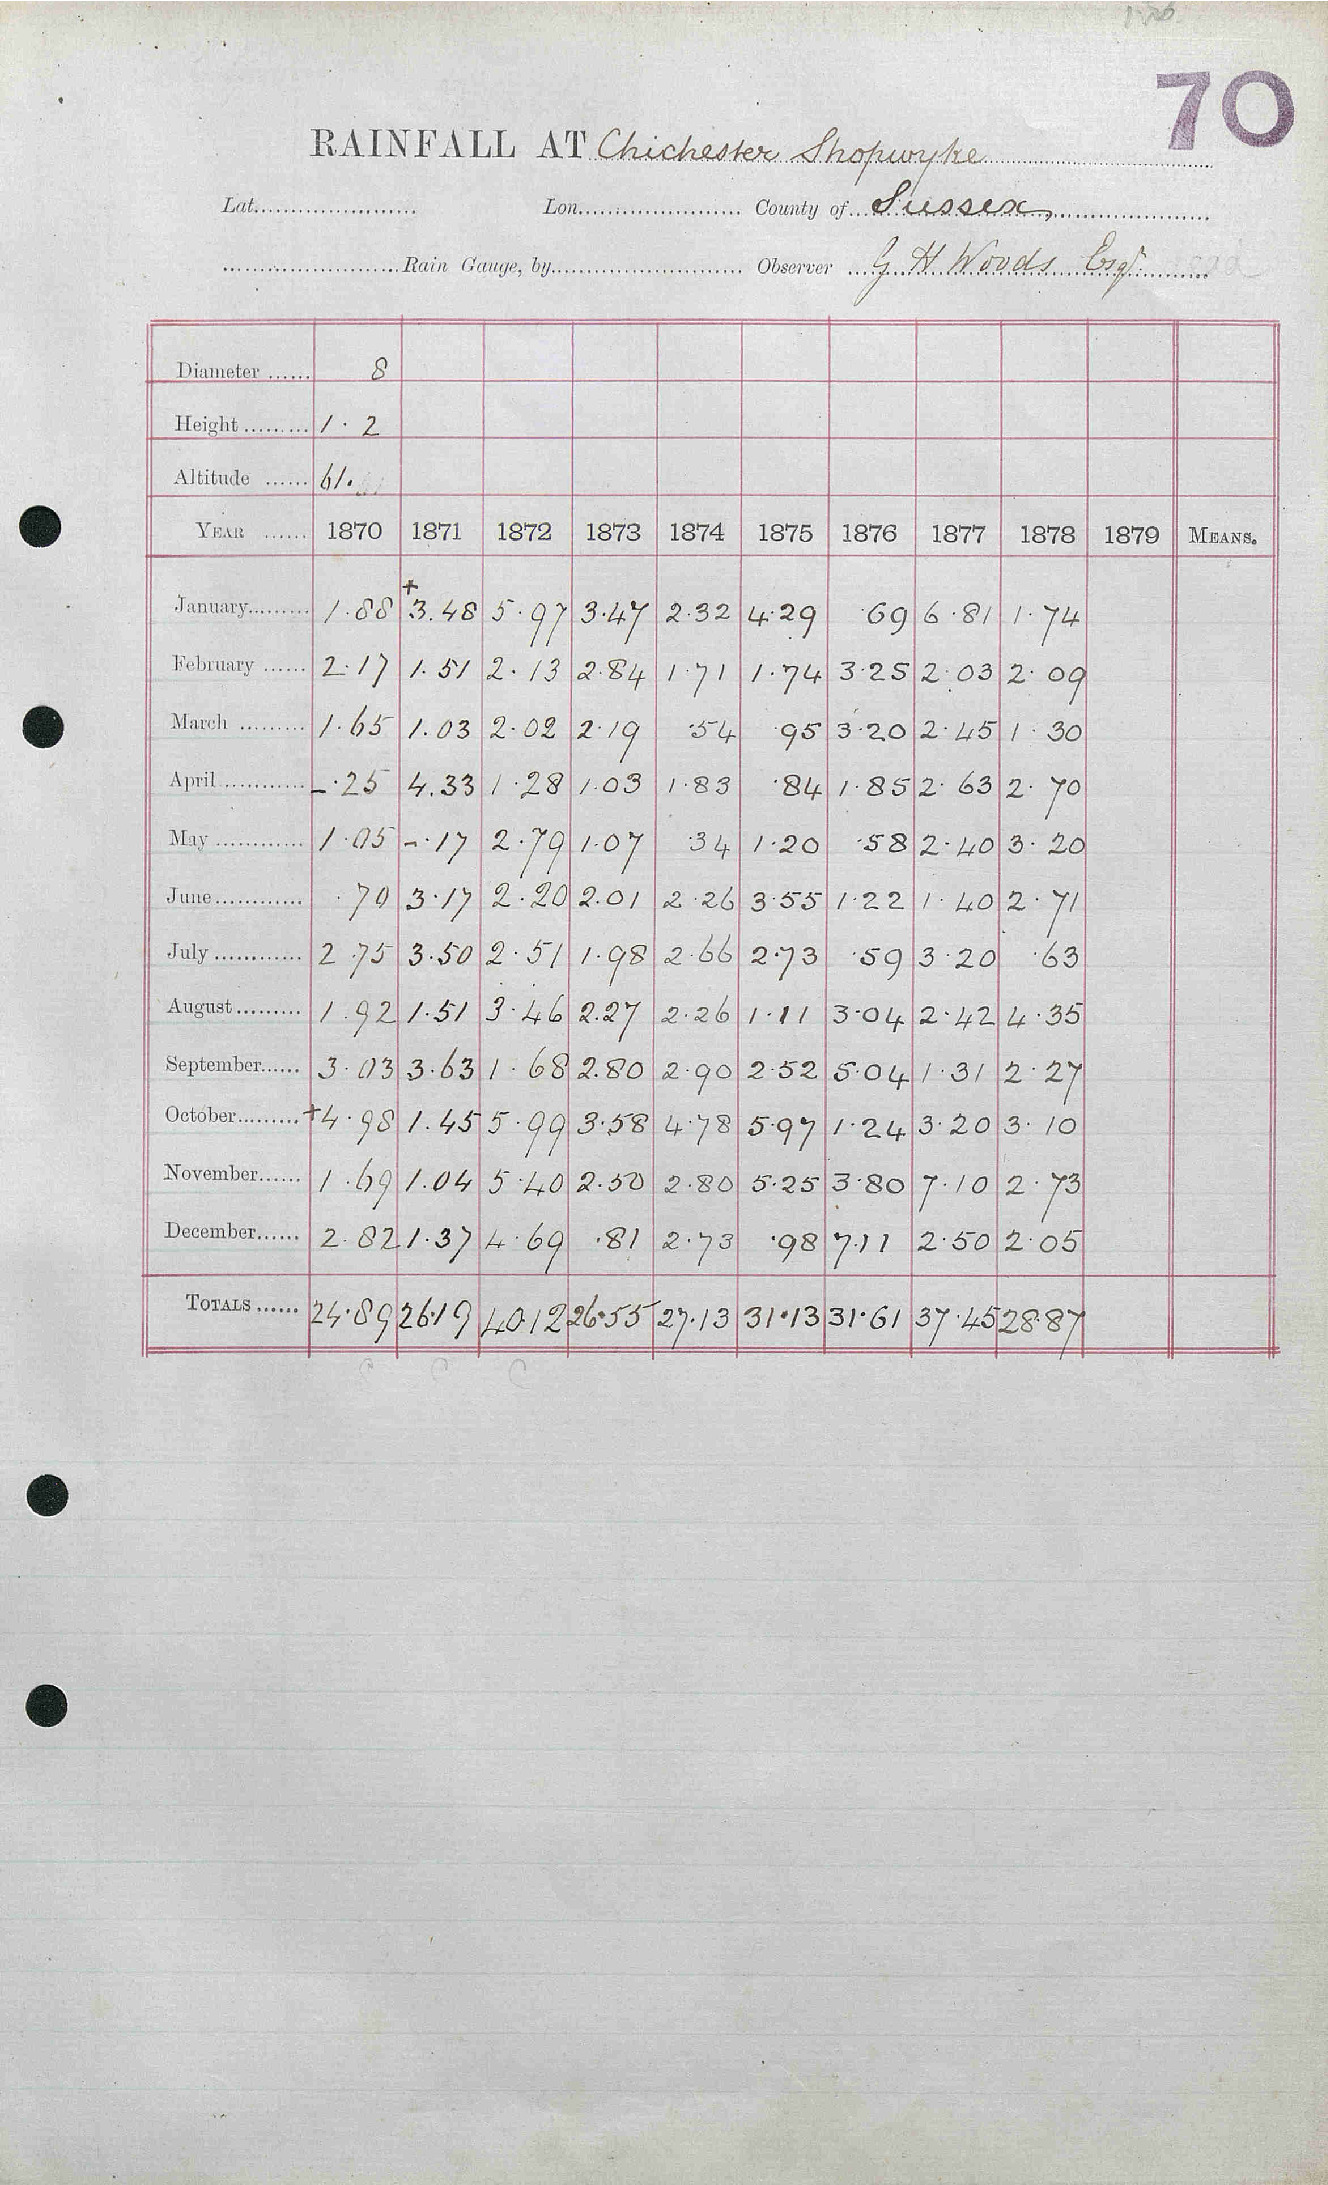 70
RAINFALL AT Chichester Shopwyke
Lat. Lon. County of Sussex,
Rain Gauge, by Observer G H Woods Esqr.
Diameter 8
Height 1.2
Altitude 61.
YEAR 1870 1871 1872 1873 1874 1875 1876 1877 1878 1879 MEANS.
January 1.88 +3.48 5.97 3.47 2.32 4.29 .69 6.81 1.74
February 2.17 1.51 2.13 2.84 1.71 1.74 3.25 2.03 2.09
March 1.65 1.03 2.02 2.19 .54 .95 3.20 2.45 1.30
April -.25 4.33 1.28 1.03 1.83 .84 1.85 2.63 2.70
May 1.05 -.17 2.79 1.07 .34 1.20 .58 2.40 3.20
June .70 3.17 2.20 2.01 2.26 3.55 1.22 1.40 2.71
July 2.75 3.50 2.51 1.98 2.66 2.73 .59 3.20 .63
August 1.92 1.51 3.46 2.27 2.26 1.11 3.04 2.42 4.35
September 3.03 3.63 1.68 2.80 2.90 2.52 5.04 1.31 2.27
October +4.98 1.45 5.99 3.58 4.78 5.97 1.24 3.20 3.10
November 1.69 1.04 5.40 2.50 2.80 5.25 3.80 7.10 2.73
December 2.82 1.37 4.69 .81 2.73 .98 7.11 2.50 2.05
TOTALS 24.89 26.19 40.12 26.55 27.13 31.13 31.61 37.45 28.87